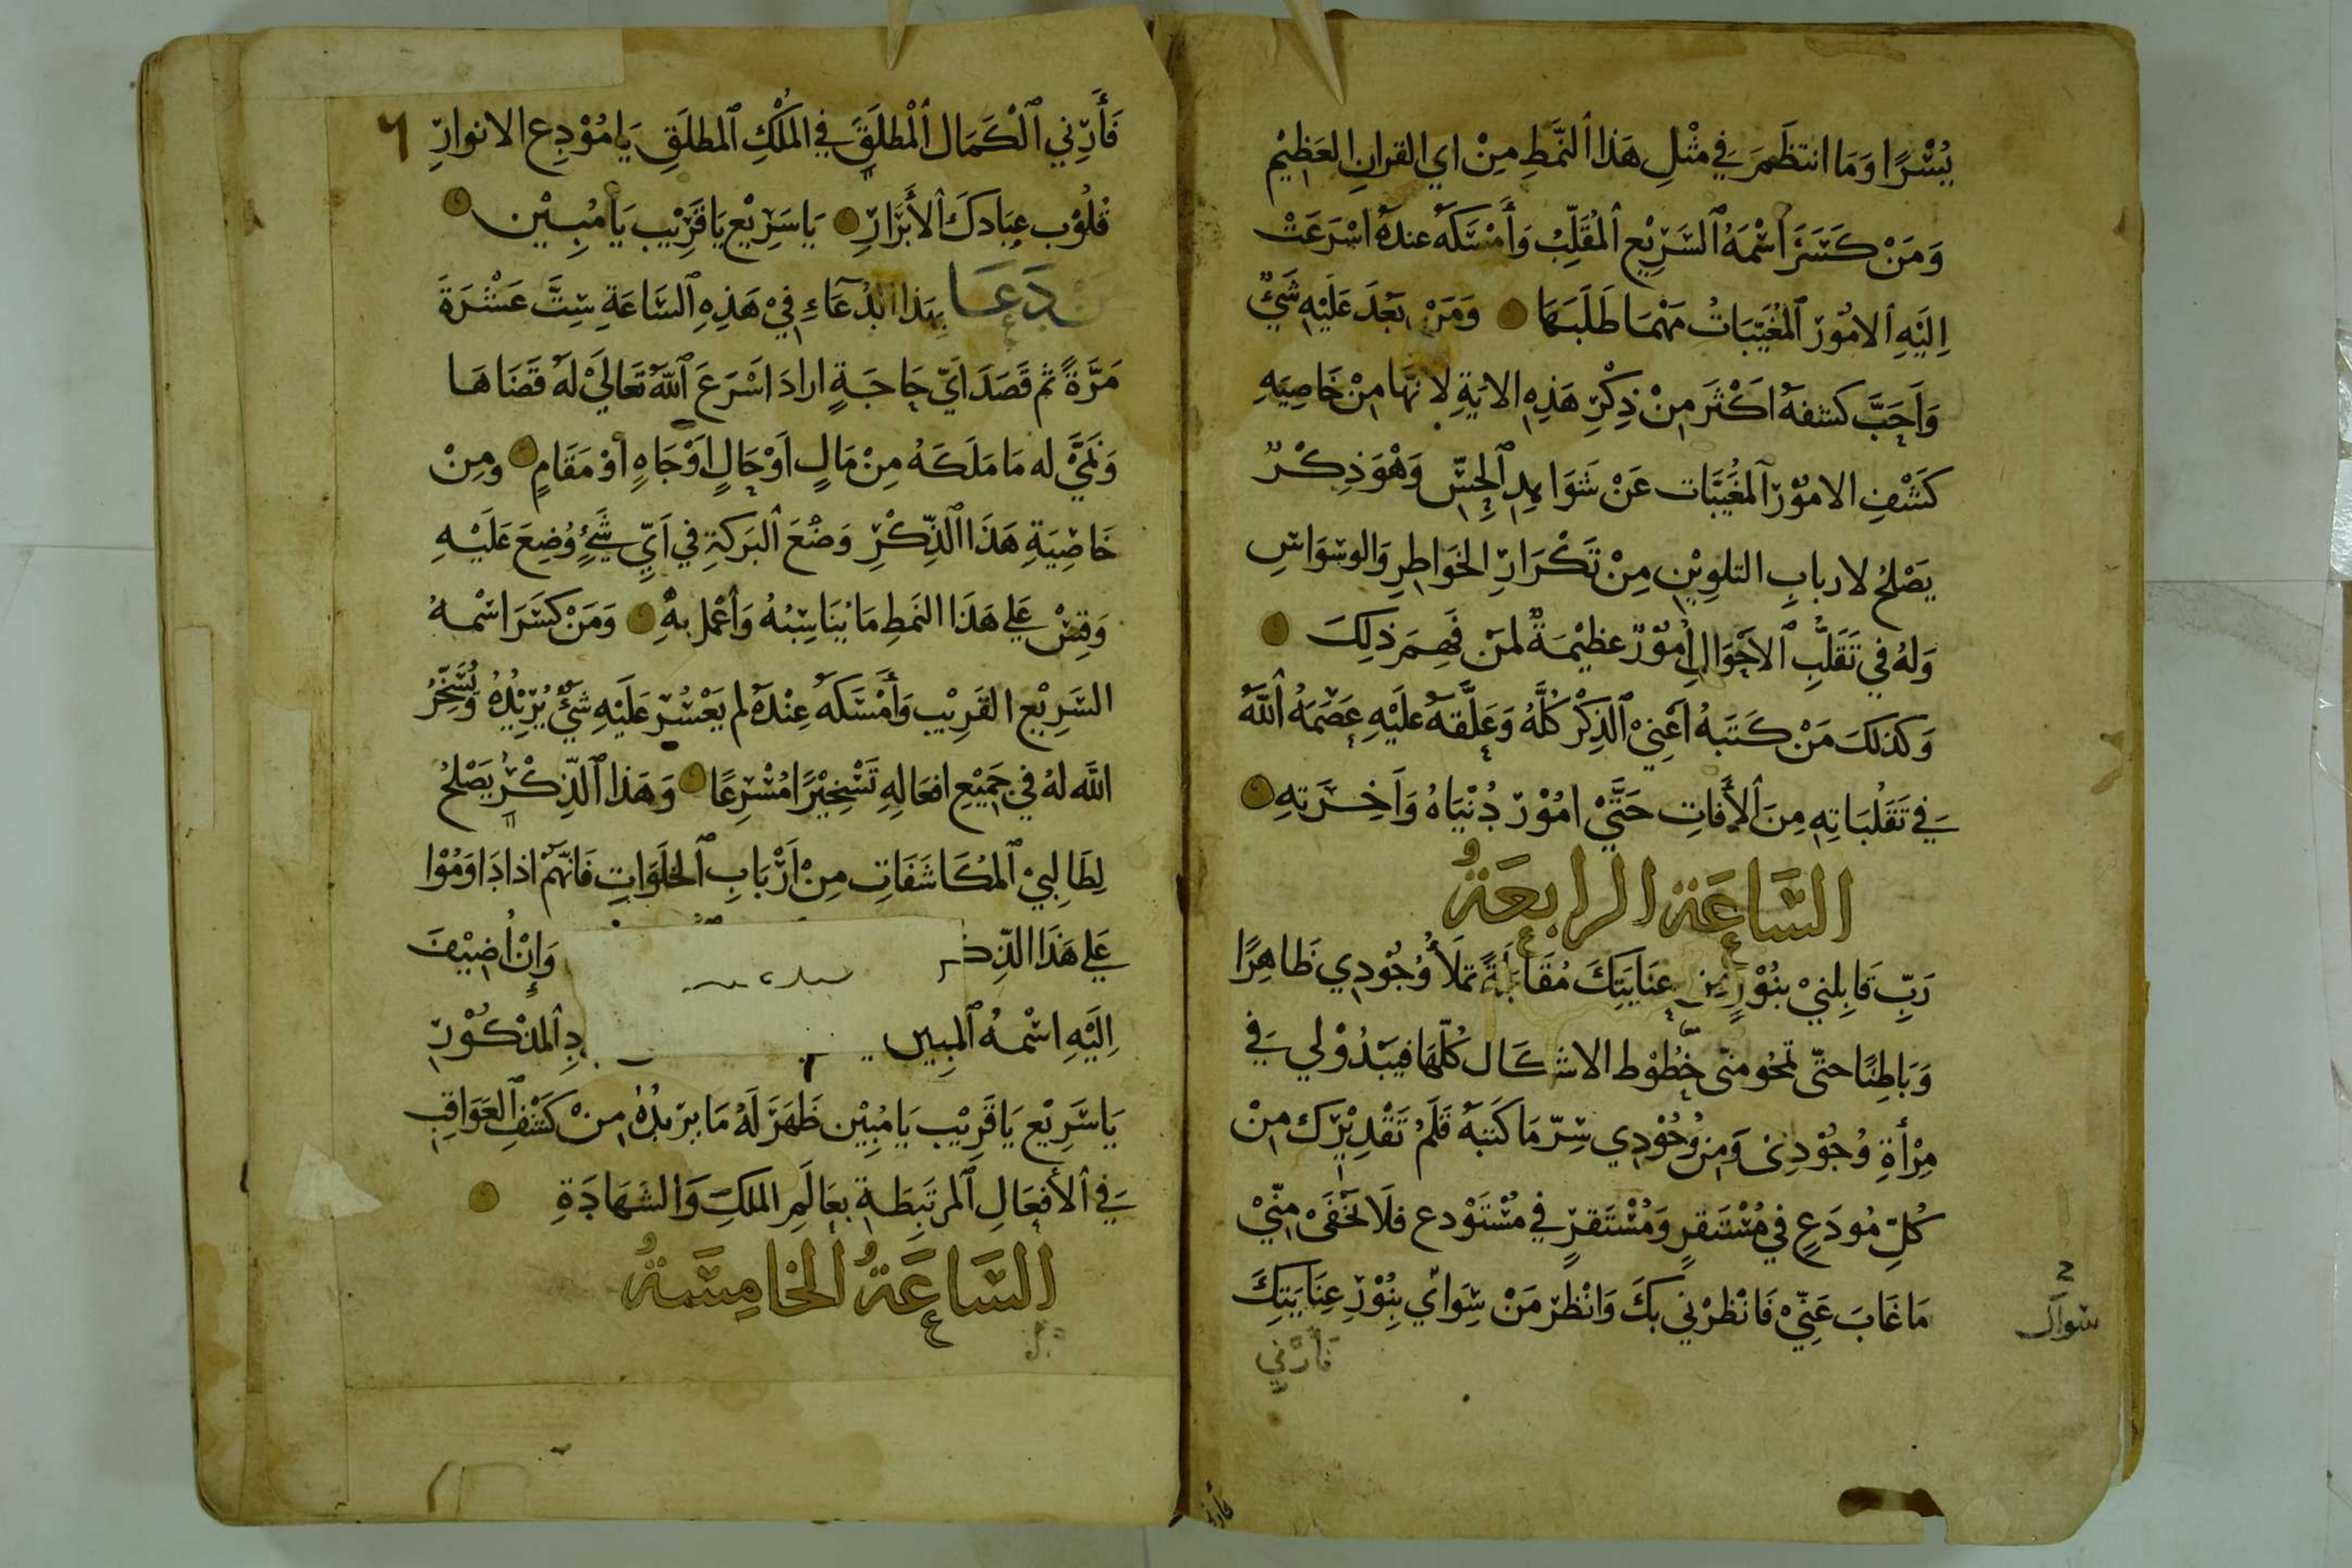 يُسْرًا وَمَا انتظَمَ فِي مثْلِ هَذا النَّمَطِ مِنْ اي القرانِ العَظِيْم
وَمَنْ كَسَّرَ اسْمَهُ السَّرِيْع المُقَلِّبْ وَأَمْسَكَهُ عندهُ اسْرَعَتْ
اِلَيْهِ الامُوْرُ المُغَيَّبَاتُ مَهْمَا طَلَبَهَا وَمَنْ بَعُدَ عَلَيْهِ شَيْءٌ
وَاَحَبَّ كشفهُ اَكْثَرَ مِنْ ذِكْرِ هَذِهِ الايَةِ لانَّهَا مِنْ خَاصِيَهِ
كَشْفِ الامُوْرِ المُغَيَّبَات عَنْ شَوَاهِدِ الحِسِّ وَهْوَ ذِكْرٌ
يَصْلحُ لاربابِ التلوِيْنِ مِنْ تَكْرَارِ الخَوَاطِرِ وَالوسْوَاسِ
وَلهُ فِي تَقَلُّبِ الاَحْوَالِ اُمُوْرٌ عظيْمَةٌ لمَن فَهِمَ ذلِكَ
وَكذلكَ مَنْ كَتَبَهُ اَعْنِيْ الذِكْرَ كُلَّهُ وَعَلَّقهُ عَليْهِ عَصَمَهُ اللّهُ
فِي تَقَلُبَاتِهِ مِنَ الأَفَاتِ حَتَّيْ امُوْر دُنْيَاهُ وَاَخِرَتِهِ
السَّاعَة الرابعَةُ
رَبِّ قَابِلنِيْ بنُوْرٍ مِن عِنَايَتِكَ مُقَابَلَةً تملَأُ وُجُوْدِي ظَاهِرًا
وَبَاطِنًا حتَّى تمحُو منّى خُطُوْط الاشكَال كُلّهَا فيَبْدُوْ لي فِي
مِرْأةِ وُجُوْدِى وَمِنْ وُجُوْدِي سِرّ مَا كَتَبَهُ قَلَمُ تَقْدِيْرِك مِنْ
كُلِّ مُودَعٍ فِي مُسْتَقرٍ وَمُسْتَقرٍّ فِي مسْتَوْدع فَلَا يَخْفَى مِنِّيْ
مَا غَابَ عَنِّيْ فَانْظرْنِي بكَ وَانْظر مَنْ سِوَايْ بِنُوْرِ عِنَايَتِكَ
فأرني
سوال
٦
فَأَرِنِي الْكَمَال المْطلَقَ فِي المُلْكِ المطلَقِ يَا مُوْدِع الانوارِ
قُلُوْب عِبَادكَ الأبْرَارِ يَا سَرِيْع يَا قَرِيْب يَا مُبِيْن
مَنْ دَعَا بِهَذا الدُّعَآءِ فِيْ هَذِهِ السَّاعَةِ سِتَّ عَشْرَةَ
مَرَّةً ثم قَصَدَ اَيّ حَاجَةٍ ارادَ اسْرَعَ اللّهُ تَعَالَيْ لَهُ قَضَاهَا
وَنَمَيْ له مَا مَلَكَهُ مِنْ مَالٍ اَوْ حَالٍ اَوْ جَاهٍ اوْ مَقَامٍ ومِنْ
خَاصِيَةِ هَذَا الذِّكْرِ وَضْعَ البَرَكةِ فِي اَيِّ شَيْءٍ وُضِعَ عَلَيْهِ
وَقِسْ عَلي هَذَا النَمَطِ مَا يُنَاسِبُهُ وَاعْمل بهِ وَمَنْ كَسَّرَ اسْمهُ
السَرِيْع القَرِيْب وَأَمْسَكَهُ عِنْدَهُ لم يَعْسُر عَلَيْهِ شَيْءٌ يُرِيْدُهُ وَيُسَخِّرُ
اللّه لهُ فِي جَمِيْعِ افعَالِهِ تَسْخِيْرًا مُسْرِعًا وَهَذا الذِّكْرُ يَصْلحُ
لِطَالِبِيْ المُكَاشَفَاتِ مِنْ اَرْبَابِ الخلَوَاتِ فَانَّهُمْ اذا دَاوَمُوْا
عَلي هَذَا الذِّكـ وَإِنْ اُضِيْفَ
اِلَيْهِ اسْمهُ المُبِين دِ المذكُوْرِ
يَا سَرِيْع يَا قَرِيْب يَا مُبِيْن ظَهَرَ لَهُ مَا يرِيدُهُ مِنْ كَشْفِ العَوَاقِبِ
فِي الأفعَالِ المرتَبِطَةِ بعَالَمِ الملكِ وَالشَهَادَةِ
السَّاعَةُ الخامِسَةُ